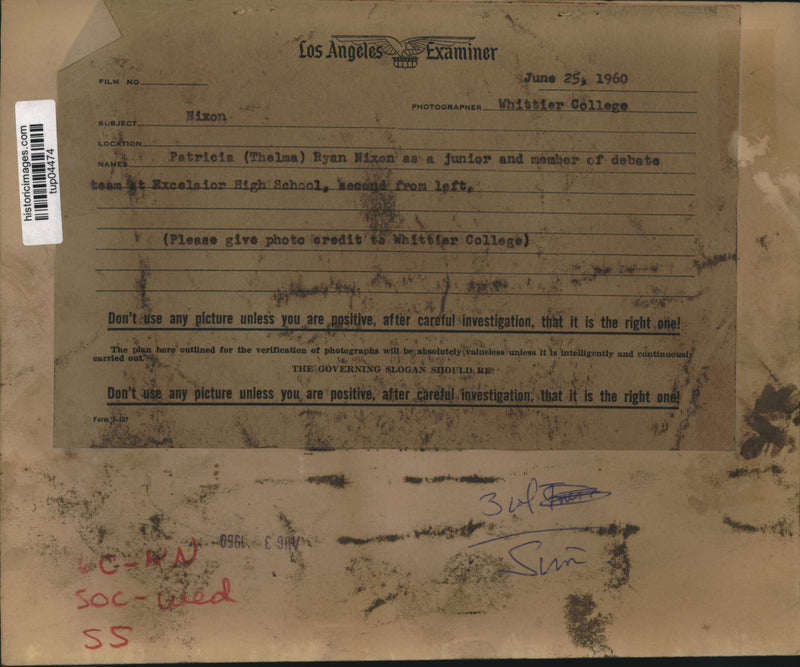 Los Angeles Examiner
FILM NO.
June 25, 1960
PHOTOGRAPHER Whittier College
SUBJECT Nixon
LOCATION
NAMES Patricia (Thelma) Ryan Nixon as a junior and member of debate
team at Excelsior High School, second from left,
(Please give photo credit to Whittier College)
Don't use any picture unless you are positive, after careful investigation, that it is the right one!
The plan here outlined for the verification of photographs will be absolutely valueless unless it is intelligently and continuously
carried out.
THE GOVERNING SLOGAN SHOULD BE:
Don't use any picture unless you are positive, after careful investigation, that it is the right one!
Form 7-127
historicimages.com
tup04474
AUG 3 1960
3 col
Sun
SOC-Wed
SS